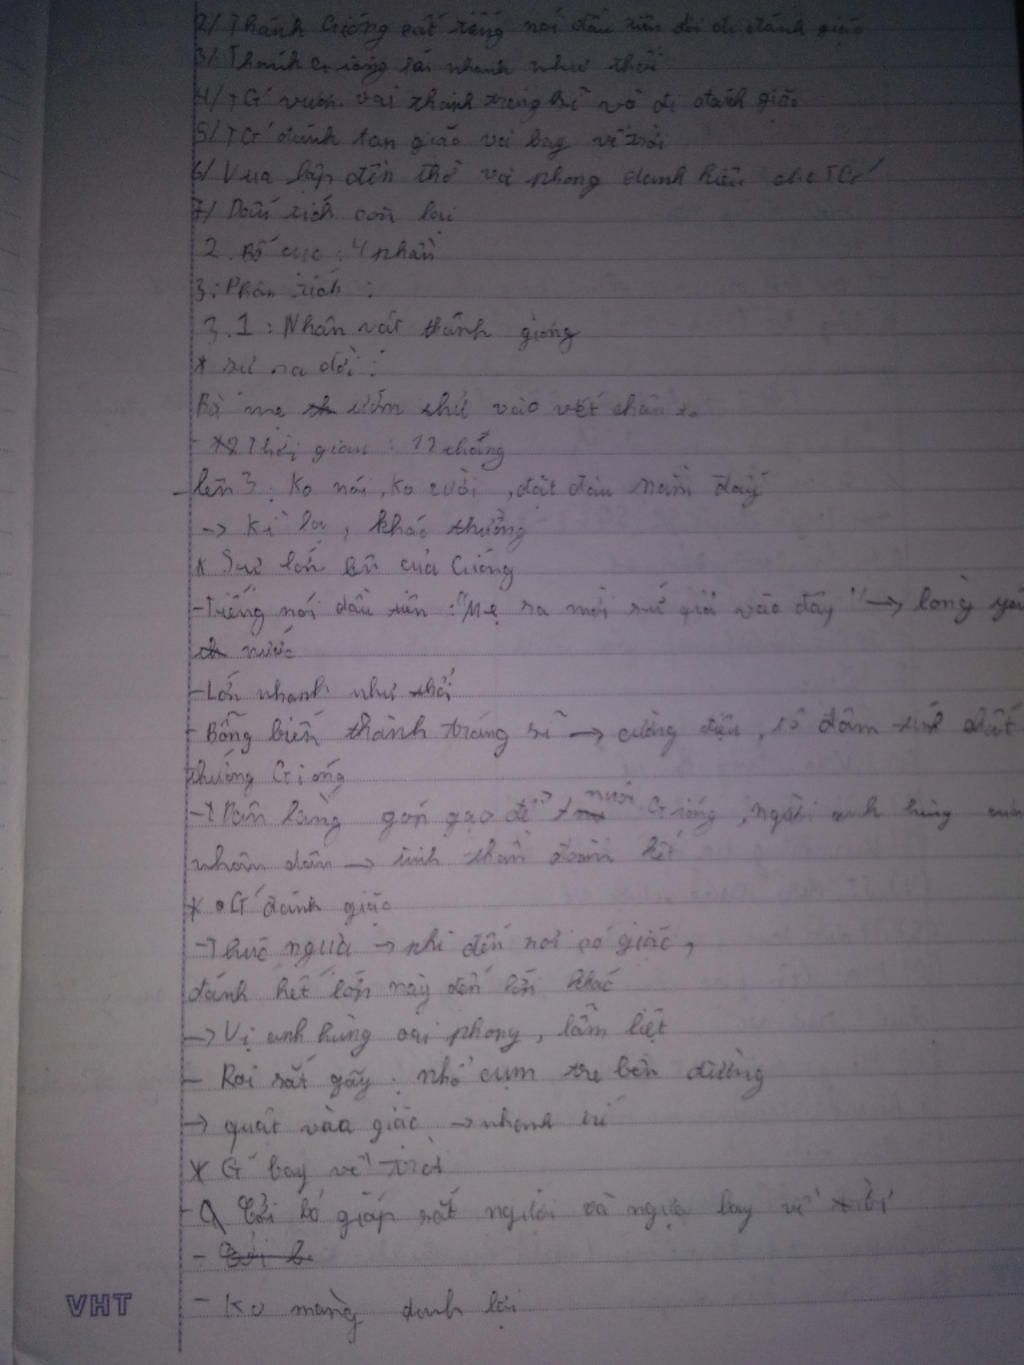 2/ Thánh Gióng cất tiếng nói đầu tiên đòi đi đánh giặc
3/ Thánh Gióng lớn nhanh như thổi
4/ TG vươn vai thành tráng sĩ và đi đánh giặc
5/ TG đánh tan giặc và bay về trời
6/ Vua lập đền thờ và phong danh hiệu cho TG
7/ Dấu tích còn lại
2. Bố cục : 4 phần
3: Phân tích :
3.1 : Nhân vật thánh gióng
* sự ra đời :
Bà mẹ ướm thử vào vết chân to
- Thời gian : 12 tháng
- lên 3 : Ko nói, ko cười, đặt đâu nằm đấy
-> Kì lạ, khác thường
* Sự lớn lên của Gióng
- Tiếng nói đầu tiên : "Mẹ ra mời sứ giả vào đây" -> lòng yêu
nước
- Lớn nhanh như thổi
- Bỗng biến thành tráng sĩ -> cường điệu, tô đậm chất
Gióng
- Dân làng góp gạo để nuôi Gióng, người anh hùng của
nhân dân -> tinh thần đoàn kết
* G đánh giặc
- Thúc ngựa -> phi đến nơi có giặc,
đánh hết lớp này đến lớp khác
-> Vị anh hùng oai phong, lẫm liệt
- Roi sắt gãy : nhổ cụm tre bên đường
-> quật vào giặc -> nhanh trí
* G bay về trời
- Cởi bỏ giáp sắt người và ngựa bay về trời
- Ko màng danh lợi
VHT